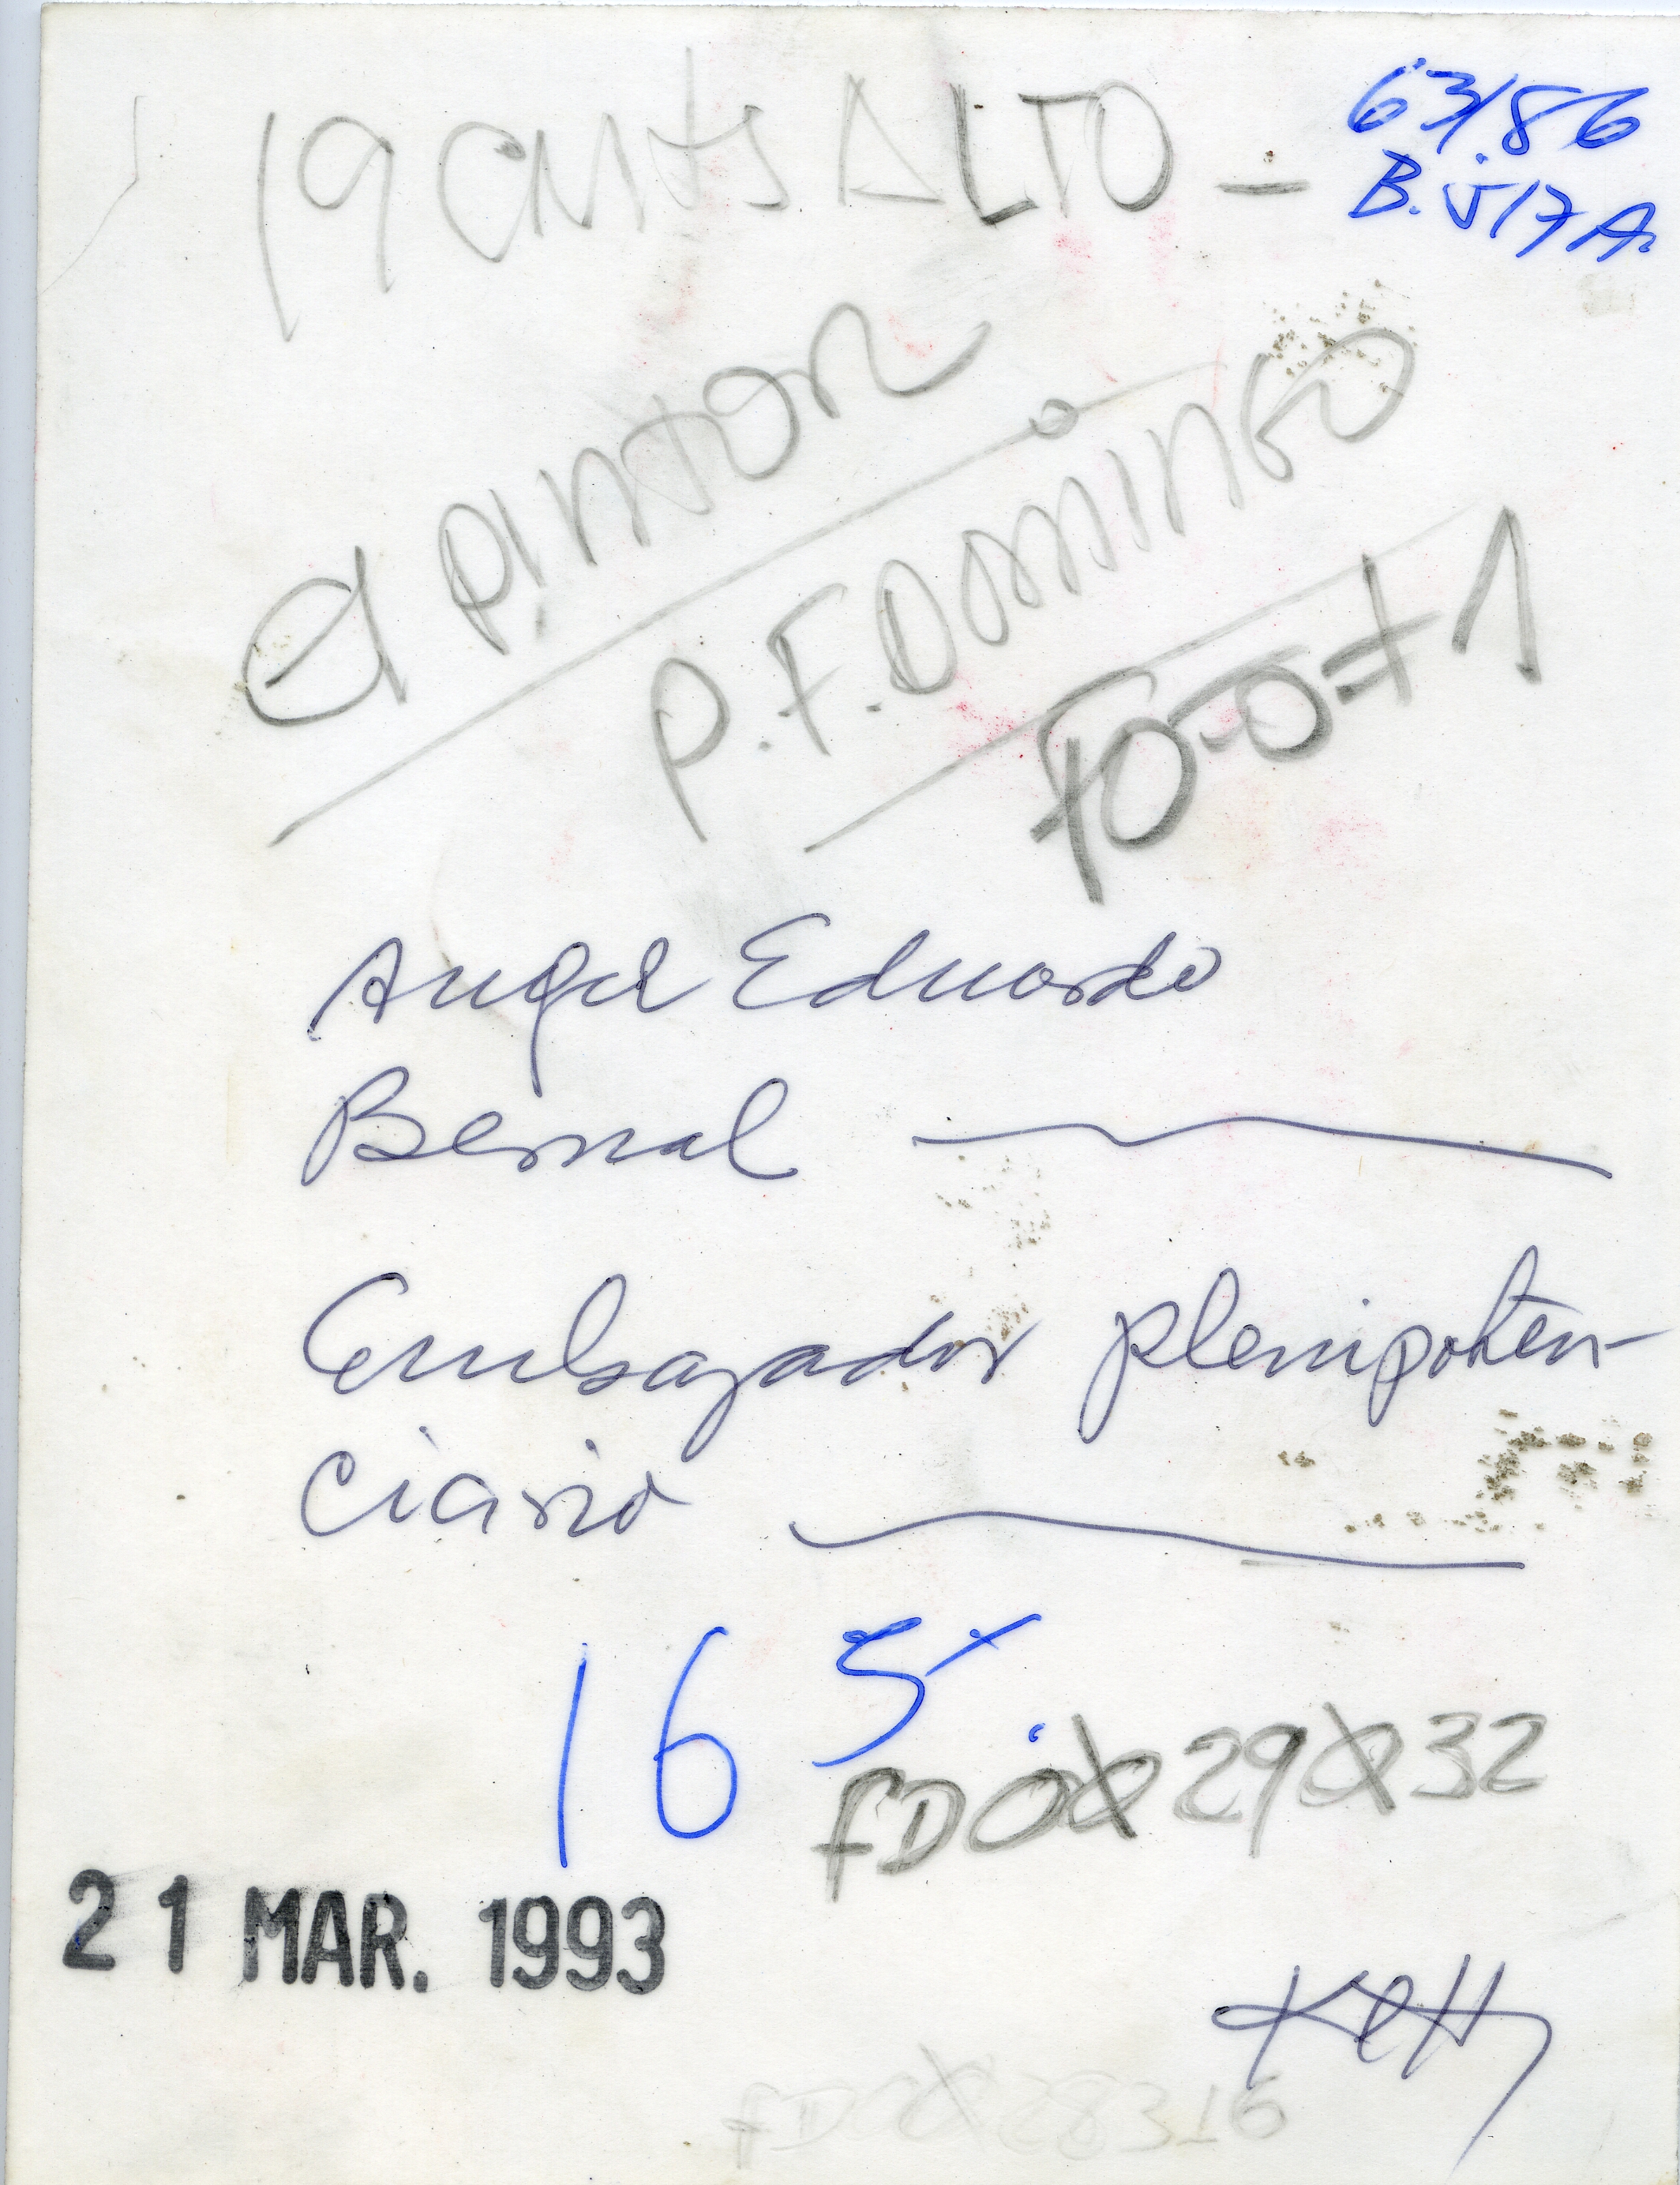 19 CMTS ALTO —
63/86
B.517A.
El PINTOR
P.F. DOMINGO
FO-O=71
Angel Eduardo
Bernal
Embajador plenipoten-
ciario
16 5
FDOX29X32
21 MAR. 1993
Ketty